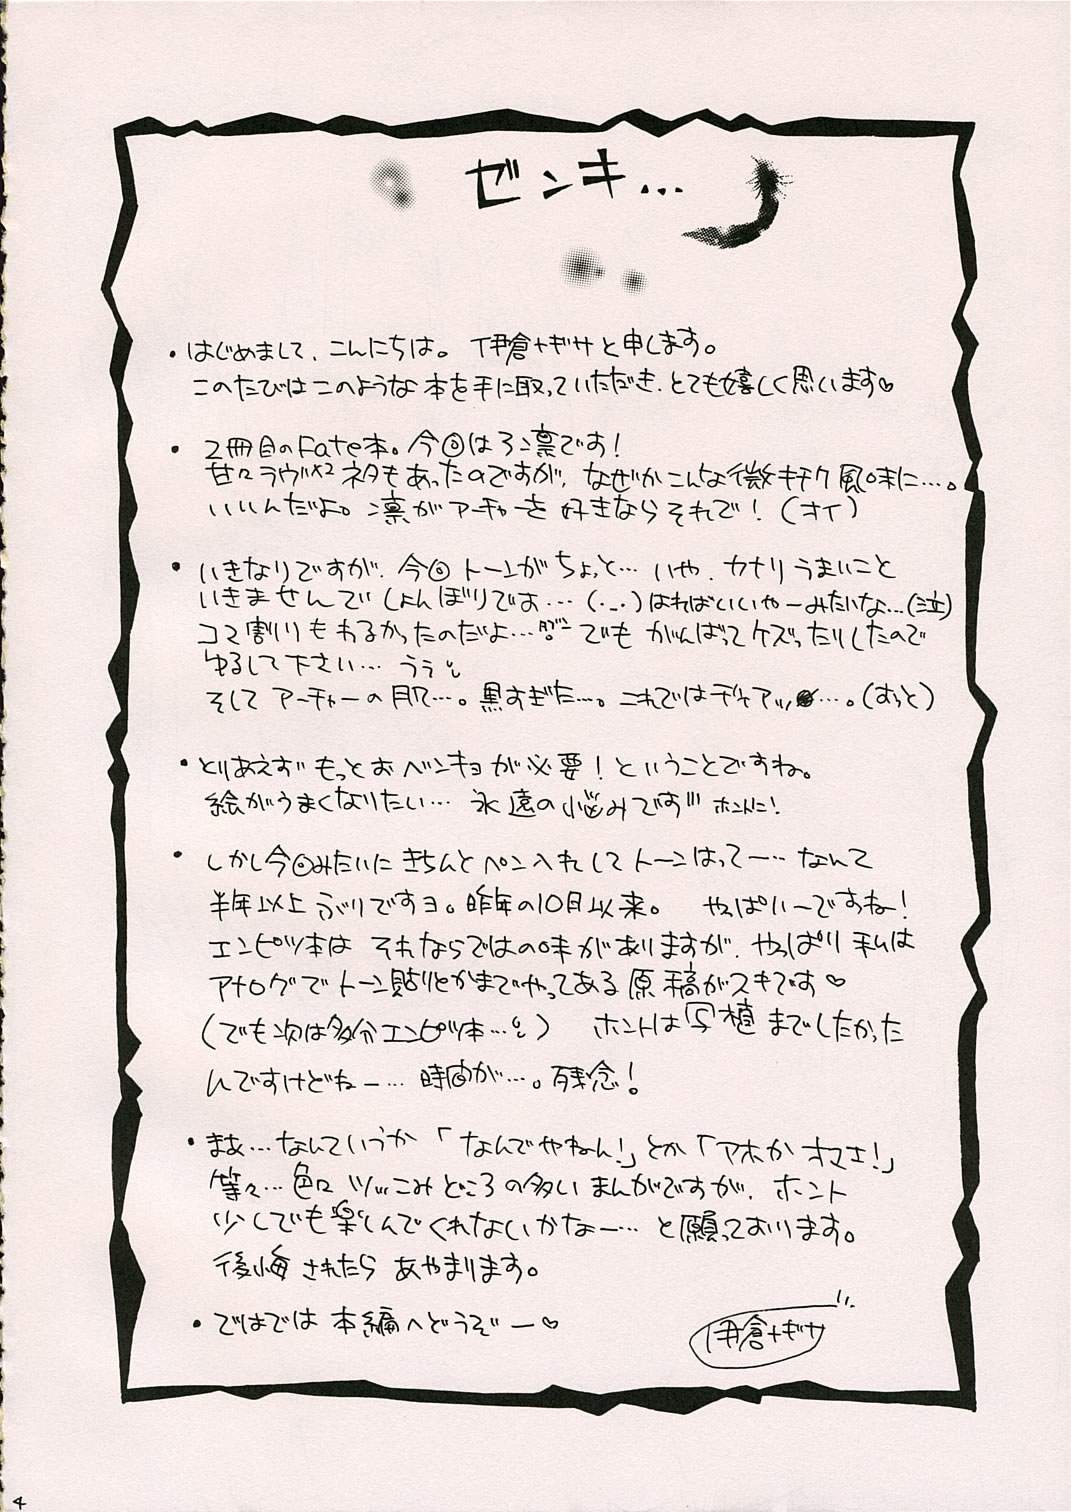 ゼンキ…
・はじめまして、こんにちは。伊倉ナギサと申します。
このたびはこのような本を手に取っていただき、とても嬉しく思います♡
・2冊目のFate本。今回は弓凛です！
甘々ラヴ×2ネタもあったのですが、なぜかこんな微キチク風味に…。
いいんだよ。凛がアーチャーを好きならそれで！(オイ)
・いきなりですが、今回トーンがちょっと…いや、カナリうまいこと
いきませんでしょんぼりです…(._.)はればいいやーみたいな…(泣)
コマ割りもわるかったのだよ…でもがんばってケズったりしたので
ゆるして下さい…うぅ
そしてアーチャーの肌…。黒すぎた…。これではディアッ…。(おっと)
・とりあえずもっとおベンキョが必要！ということですね。
絵がうまくなりたい…永遠の悩みです ホントに！
・しかし今回みたいにきちんとペン入れしてトーンはってー…なんて
半年以上ぶりですヨ。昨年の10月以来。やっぱいーですね！
エンピツ本はそれならではの味がありますが、やっぱり私は
アナログでトーン貼りとかまでやってある原稿がスキです♡
(でも次は多分エンピツ本…) ホントは写植までしたかった
んですけどねー…時間が…。残念！
・まあ…なんていうか「なんでやねん！」とか「アホかオマエ！」
等々…色々ツッこみどころの多いまんがですが、ホント
少しでも楽しんでくれないかなー…と願っております。
後悔されたらあやまります。
・ではでは本編へどうぞー♡
伊倉ナギサ
4